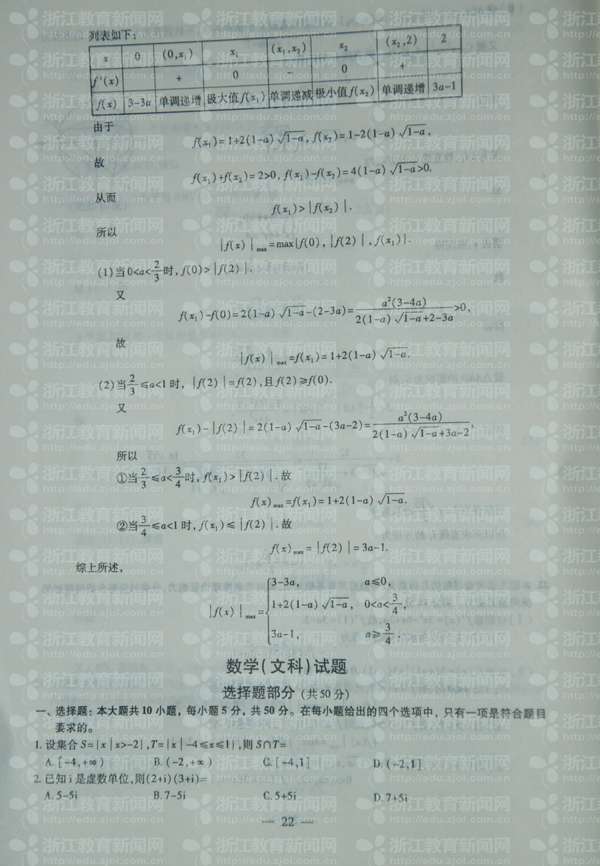 列表如下:
x 0 (0,x₁) x₁ (x₁,x₂) x₂ (x₂,2) 2
f′(x) + 0 - 0 +
f(x) 3-3a 单调递增 极大值f(x₁) 单调递减 极小值f(x₂) 单调递增 3a-1
由于
f(x₁)=1+2(1-a)√1-a, f(x₂)=1-2(1-a)√1-a,
故
f(x₁)+f(x₂)=2>0, f(x₁)-f(x₂)=4(1-a)√1-a>0.
从而
f(x₁)>|f(x₂)|.
所以
|f(x)|max=max{f(0), |f(2)|, f(x₁)}.
(1)当0<a<2/3时, f(0)>|f(2)|.
又
f(x₁)-f(0)=2(1-a)√1-a-(2-3a)=a²(3-4a)/2(1-a)√1-a+2-3a>0,
故
|f(x)|max=f(x₁)=1+2(1-a)√1-a.
(2)当2/3≤a<1时, |f(2)|=f(2),且f(2)≥f(0).
又
f(x₁)-|f(2)|=2(1-a)√1-a-(3a-2)=a²(3-4a)/2(1-a)√1-a+3a-2,
所以
①当2/3≤a<3/4时, f(x₁)>|f(2)|.故
f(x)max=f(x₁)=1+2(1-a)√1-a.
②当3/4≤a<1时, f(x₁)≤|f(2)|.故
f(x)max=|f(2)|=3a-1.
综上所述,
|f(x)|max={3-3a, a≤0,
1+2(1-a)√1-a, 0<a<3/4,
3a-1, a≥3/4.
数学(文科)试题
选择题部分(共50分)
一、选择题:本大题共10小题,每小题5分,共50分。在每小题给出的四个选项中,只有一项是符合题目
要求的。
1.设集合S={x|x>-2},T={x|-4≤x≤1},则S∩T=
A.[-4,+∞) B.(-2,+∞) C.[-4,1] D.(-2,1]
2.已知i是虚数单位,则(2+i)(3+i)=
A.5-5i B.7-5i C.5+5i D.7+5i
— 22 —
浙江教育新闻网
http://edu.zjol.com.cn